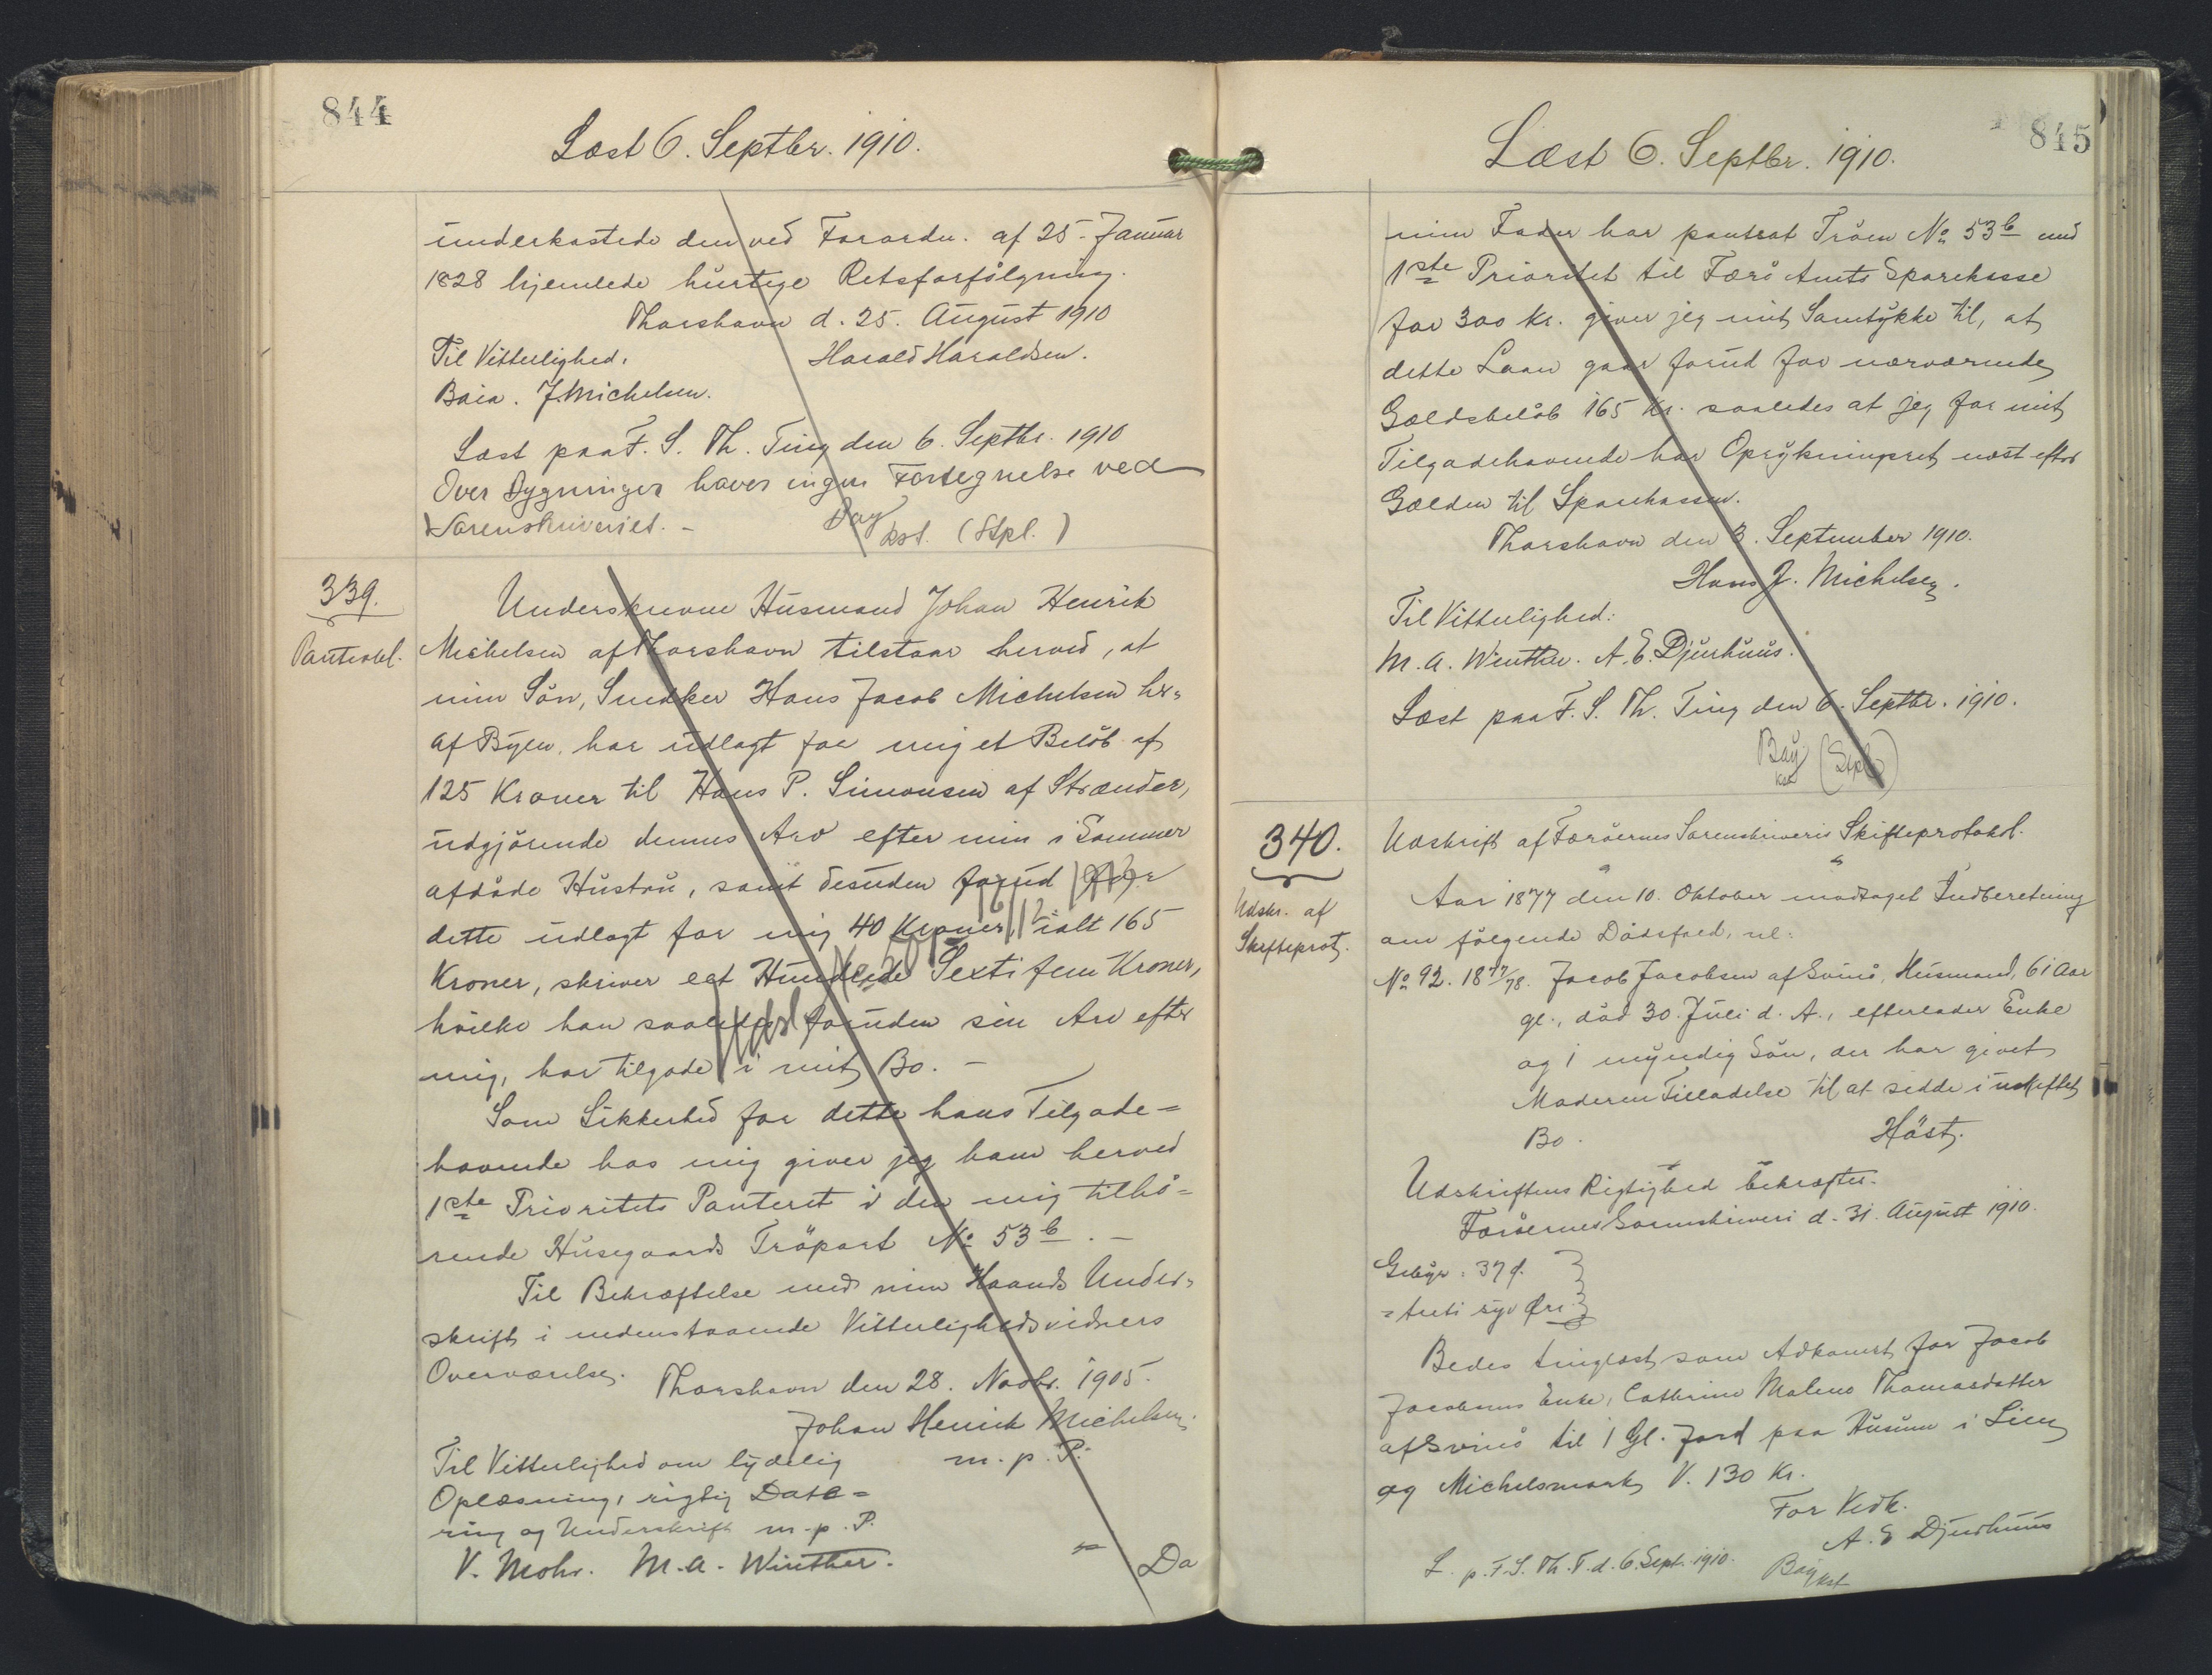 844
Læst 6. Septbr. 1910.
underkastede den ved Forordn. af 25. Januar
1828 hjemlede hurtige Retsforfølgning.
Thorshavn d. 25. August 1910
Til Vitterlighed.
Harald Haraldsen.
J. Michelsen.
Læst paa F. S. Th. Ting den 6. Septbr. 1910
Over Bygninger haves ingen Fortegnelse ved
Sorenskriveriet. -
Bay
kst. (Stpl.)
339.
Panteobl.
Underskrevne Husmand Johan Henrik
Michelsen af Thorshavn tilstaar herved, at
min Sön, Snedker Hans Jacob Michelsen her-
af Byen, har udlagt for mig et Beløb af
125 Kroner til Hans P. Simonsen af Strænder,
udgjørende dennes Arv efter min i Sommer
afdøde Hustru, samt desuden forud for
dette udlagt for mig 40 Kroner, ialt 165
Kroner, skriver eet Hundrede Sexti fem Kroner,
hvilke han saaledes foruden sin Arv efter
mig, har tilgode i mit Bo. -
Som Sikkerhed for dette hans Tilgode=
havende hos mig giver jeg ham herved
1ste Prioritets Panteret i den mig tilhø=
rende Husegaards Tröpart No 53b. -
Til Bekræftelse med min Haands Under-
skrift i nedenstaaende Vitterlighedsvidners
Overværelse.
Thorshavn den 28. Novbr. 1905.
Johan Henrik Michelsen.
m. p. P.
Til Vitterlighed om lydelig
Oplæsning, rigtig Date=
ring og Underskrift m. p. P.
V. Mohr. M. A. Winther.
Da
845
Læst 6. Septbr. 1910.
min Fader har pantsat Tröen No 53b med
1ste Prioritet til Færø Amts Sparekasse
for 300 Kr. giver jeg mit Samtykke til, at
dette Laan gaar forud for nærværende
Gældsbeløb 165 Kr. saaledes at jeg for mit
Tilgodehavende har Oprykningsret næst efter
Gælden til Sparekassen.
Thorshavn den 3. September 1910.
Hans J. Michelsen.
Til Vitterlighed:
M. A. Winther. A. E. Djurhuus.
Læst paa F. S. Th. Ting den 6. Septbr. 1910.
Bay
kst (Stpl)
340.
Udskr. af
Skifteprot.
Udskrift af Færøernes Sorenskriveris Skifteprotokol.
Aar 1877 den 10. Oktober modtaget Indberetning
om følgende Dødsfald, nl.
No 92. 1877/78. Jacob Jacobsen af Svinö, Husmand, 61 Aar
gl., död 30. Juli d. A., efterlader Enke
og 1 myndig Sön, der har givet
Moderen Tilladelse til at sidde i uskiftet
Bo.
Höst.
Udskriftens Rigtighed bekræftes.
Færöernes Sorenskriveri d. 31. August 1910.
Gebyr: 37 Ø.
= treti syv Øre.
Bedes tinglæst som Adkomst for Jacob
Jacobsens Enke, Cathrine Malene Thomasdatter
af Svinö til 1 Gl. Jord paa Husum i Lien
og Michelsmark V. 130 Kr.
For Vedk.
A. E Djurhuus
L. p. F. S. Th. T. d. 6. Sept. 1910.
Bay
kst